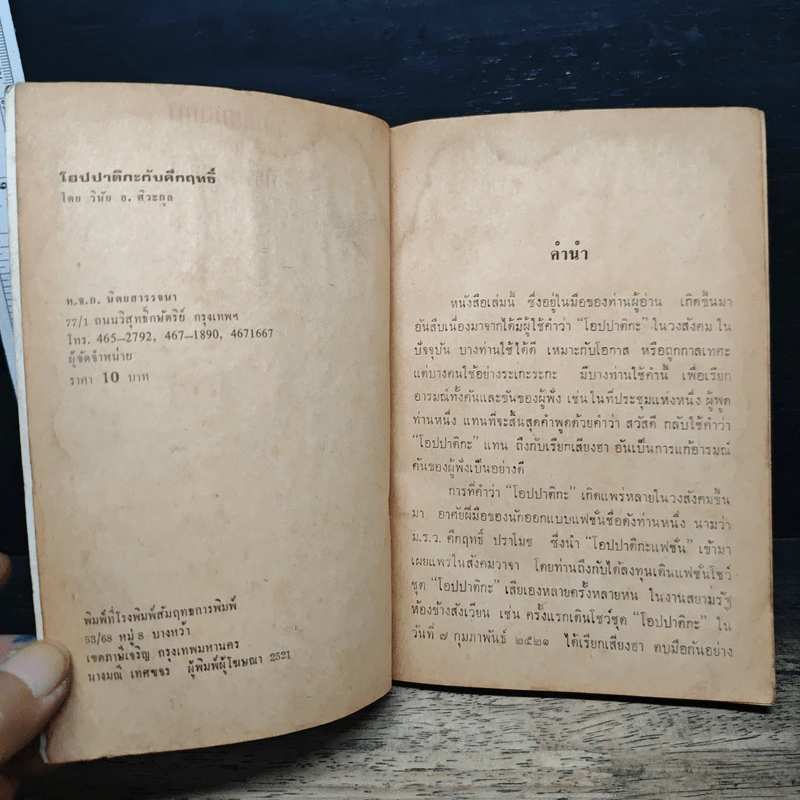 โอปปาติกะกับคึกฤทธิ์
โดย วินัย อ. ศิวะกุล
ห.จ.ก. นิตยสารรจนา
77/1 ถนนวิสุทธิ์กษัตริย์ กรุงเทพฯ
โทร. 465-2792, 467-1890, 4671667
ผู้จัดจำหน่าย
ราคา 10 บาท
พิมพ์ที่โรงพิมพ์สัมฤทธการพิมพ์
53/68 หมู่ 8 บางหว้า
เขตภาษีเจริญ กรุงเทพมหานคร
นางมณี เทศขจร ผู้พิมพ์ผู้โฆษณา 2521
คำนำ
หนังสือเล่มนี้ ซึ่งอยู่ในมือของท่านผู้อ่าน เกิดขึ้นมา
อันสืบเนื่องมาจากได้มีผู้ใช้คำว่า “โอปปาติกะ” ในวงสังคม ใน
ปัจจุบัน บางท่านใช้ได้ดี เหมาะกับโอกาส หรือถูกกาลเทศะ
แต่บางคนใช้อย่างระเกะระกะ มีบางท่านใช้คำนี้ เพื่อเรียก
อารมณ์ทั้งคันและขันของผู้ฟัง เช่น ในที่ประชุมแห่งหนึ่ง ผู้พูด
ท่านหนึ่ง แทนที่จะสิ้นสุดคำพูดด้วยคำว่า สวัสดี กลับใช้คำว่า
“โอปปาติกะ” แทน ถึงกับเรียกเสียงฮา อันเป็นการแก้อารมณ์
คันของผู้ฟังเป็นอย่างดี
การที่คำว่า “โอปปาติกะ” เกิดแพร่หลายในวงสังคมขึ้น
มา อาศัยฝีมือของนักออกแบบแฟชั่นชื่อดังท่านหนึ่ง นามว่า
ม.ร.ว. คึกฤทธิ์ ปราโมช ซึ่งนำ “โอปปาติกะแฟชั่น” เข้ามา
เผยแพร่ในสังคมวาจา โดยท่านถึงกับได้ลงทุนเดินแฟชั่นโชว์
ชุด “โอปปาติกะ” เสียเองหลายครั้งหลายหน ในงานสยามรัฐ
ห้องข้างสังเวียน เช่น ครั้งแรกเดินโชว์ชุด “โอปปาติกะ” ใน
วันที่ ๗ กุมภาพันธ์ ๒๕๒๑ ได้เรียกเสียงฮา ตบมือกันอย่าง